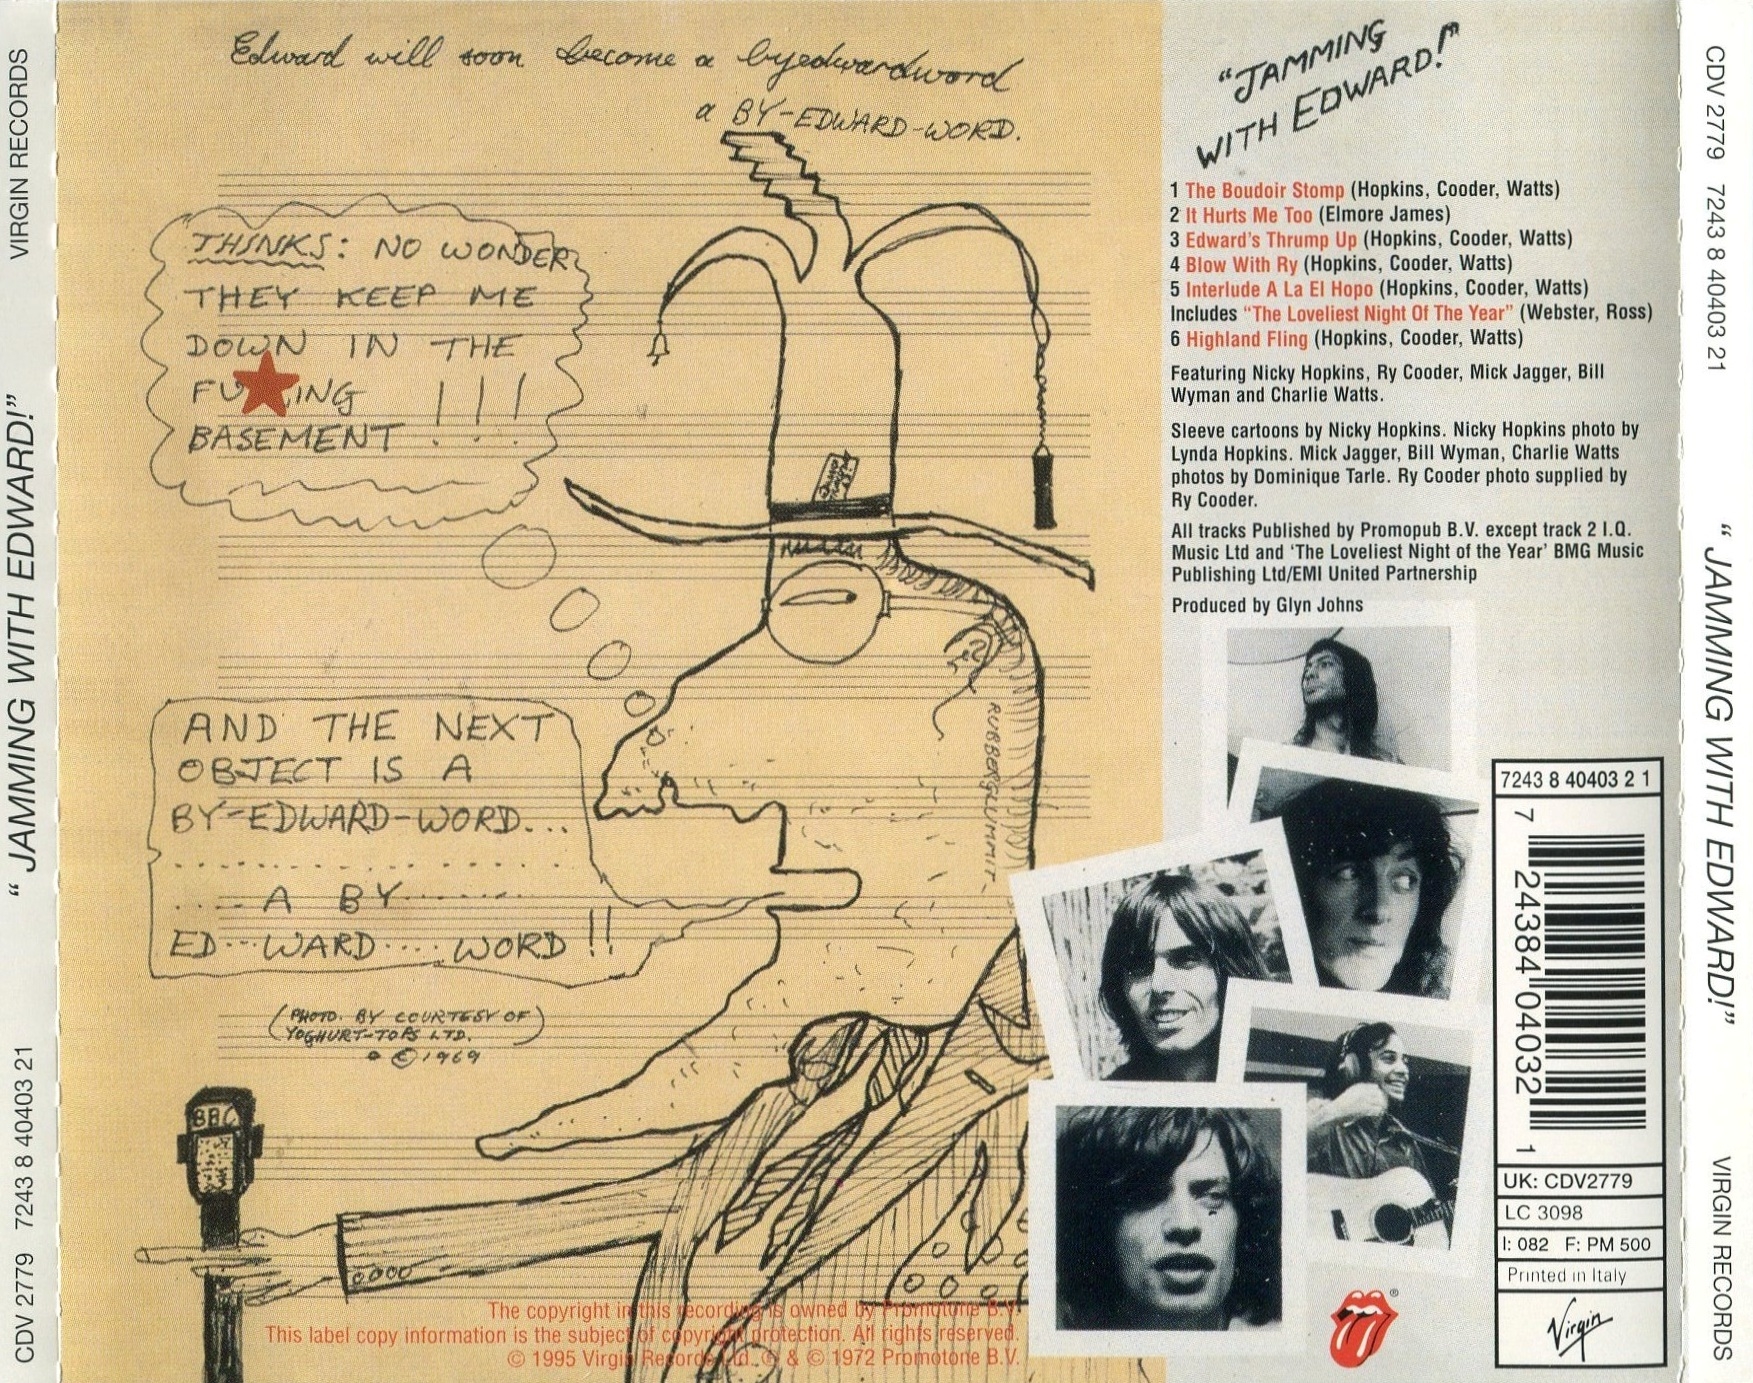 VIRGIN RECORDS
"JAMMING WITH EDWARD!"
CDV 2779 7243 8 40403 21
Edward will soon become a byedwardword
a BY-EDWARD-WORD.
THINKS: NO WONDER
THEY KEEP ME
DOWN IN THE
FU★ING !!!
BASEMENT
AND THE NEXT
OBJECT IS A
BY-EDWARD-WORD...
..............
....A BY.......
ED...WARD....WORD!!
(PHOTO. BY COURTESY OF
YOGHURT-TOPS LTD.)
© 1969
BBC
RUBBERGLUMMIT-
The copyright in this recording is owned by Promotone B.V.
This label copy information is the subject of copyright protection. All rights reserved.
© 1995 Virgin Records Ltd. ℗ & © 1972 Promotone B.V.
"JAMMING
WITH EDWARD!"
1 The Boudoir Stomp (Hopkins, Cooder, Watts)
2 It Hurts Me Too (Elmore James)
3 Edward's Thrump Up (Hopkins, Cooder, Watts)
4 Blow With Ry (Hopkins, Cooder, Watts)
5 Interlude A La El Hopo (Hopkins, Cooder, Watts)
Includes "The Loveliest Night Of The Year" (Webster, Ross)
6 Highland Fling (Hopkins, Cooder, Watts)
Featuring Nicky Hopkins, Ry Cooder, Mick Jagger, Bill
Wyman and Charlie Watts.
Sleeve cartoons by Nicky Hopkins. Nicky Hopkins photo by
Lynda Hopkins. Mick Jagger, Bill Wyman, Charlie Watts
photos by Dominique Tarle. Ry Cooder photo supplied by
Ry Cooder.
All tracks Published by Promopub B.V. except track 2 I.Q.
Music Ltd and 'The Loveliest Night of the Year' BMG Music
Publishing Ltd/EMI United Partnership
Produced by Glyn Johns
7243 8 40403 2 1
7 24384 04032 1
UK: CDV2779
LC 3098
I: 082 F: PM 500
Printed in Italy
Virgin
®
CDV 2779 7243 8 40403 21
"JAMMING WITH EDWARD!"
VIRGIN RECORDS